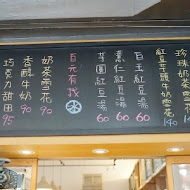 珍珠奶茶雪花
140
紅豆芋頭牛奶雪花
140
百玉紅豆湯
60
薏仁紅豆湯
60
芋圓紅豆湯
60
百元有找
奶茶雪花
90
香醇牛奶
70
巧克力甜甜
95